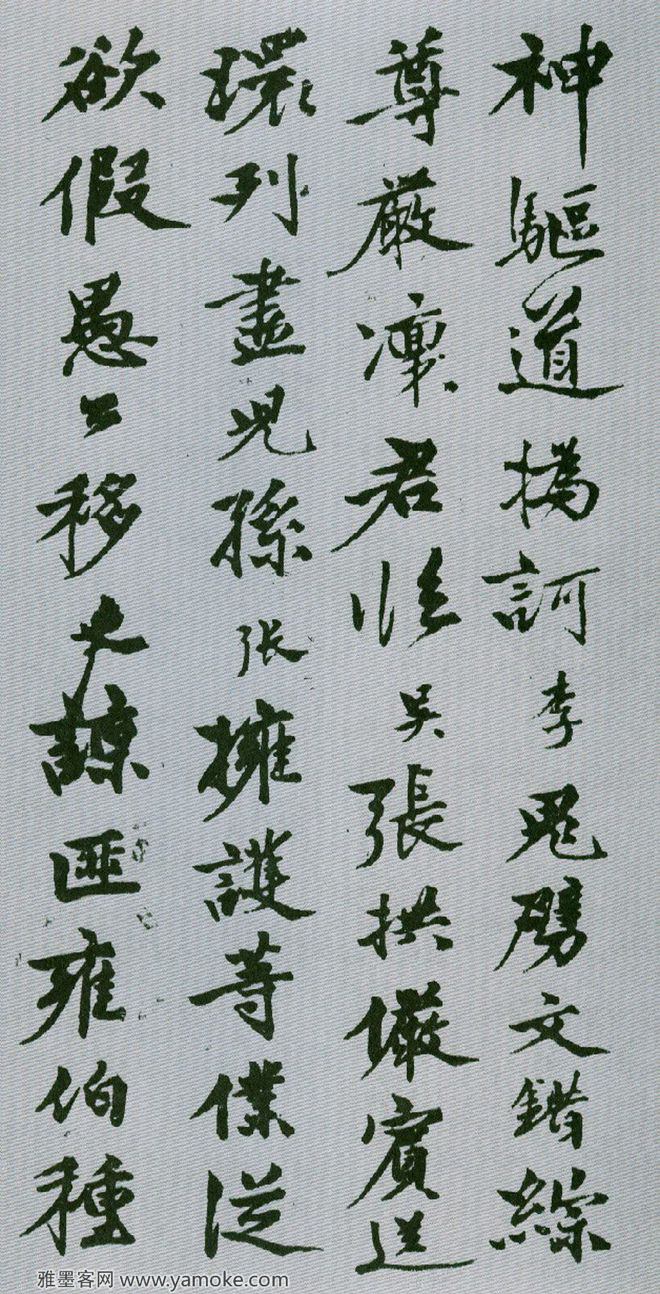 神驅道撝訶李鬼劈文錯綜
尊嚴凜君臨吳張拱儼賓送
環列盡兒孫張擁護等僕從
欲假愚公移諒匪雍伯種
雅墨客网 www.yamoke.com